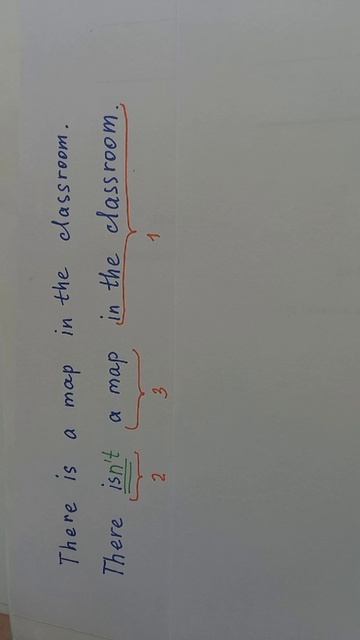 There is a map in the classroom.
There isn't a map in the classroom.
2 3 1